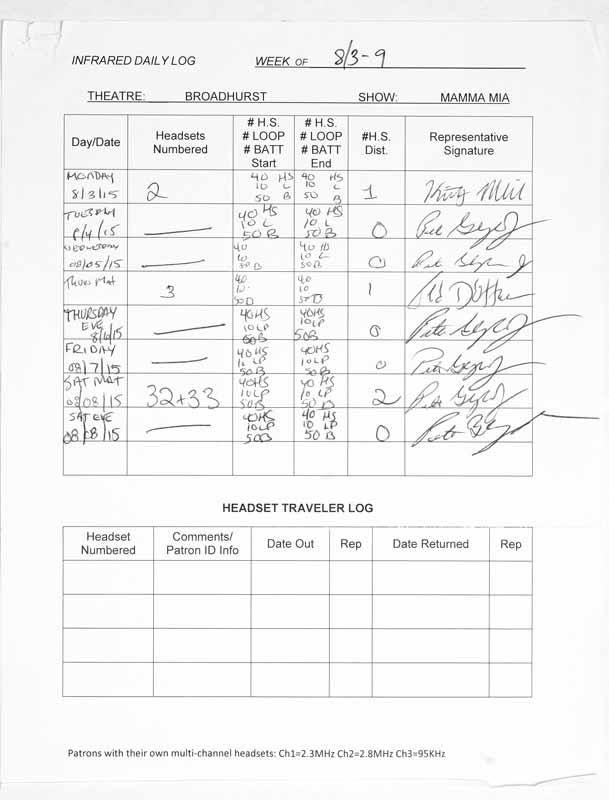 INFRARED DAILY LOG WEEK OF 8/3-9
THEATRE: BROADHURST SHOW: MAMMA MIA
Day/Date
Headsets
Numbered
# H.S.
# LOOP
# BATT
Start
# H.S.
# LOOP
# BATT
End
#H.S.
Dist.
Representative
Signature
MONDAY
8/3/15
2
40 HS
10 L
50 B
40 HS
10 L
50 B
1
TUESDAY
8/4/15
40 HS
10 L
50 B
40 HS
10 L
50 B
0
WEDNESDAY
08/05/15
40
10
50 B
40 HS
10 L
50 B
0
THURS MAT
3
40
10
50 B
40
10
50 B
1
THURSDAY
EVE
8/6/15
40HS
10LP
50B
40HS
10LP
50B
0
FRIDAY
08/7/15
40HS
10 LP
50B
40HS
10 LP
50B
0
SAT MAT
08/08/15
32+33
40HS
10LP
50B
40 HS
10 LP
50 B
2
SAT EVE
08/08/15
40HS
10LP
50B
40 HS
10 LP
50 B
0
HEADSET TRAVELER LOG
Headset
Numbered
Comments/
Patron ID Info
Date Out
Rep
Date Returned
Rep
Patrons with their own multi-channel headsets: Ch1=2.3MHz Ch2=2.8MHz Ch3=95KHz